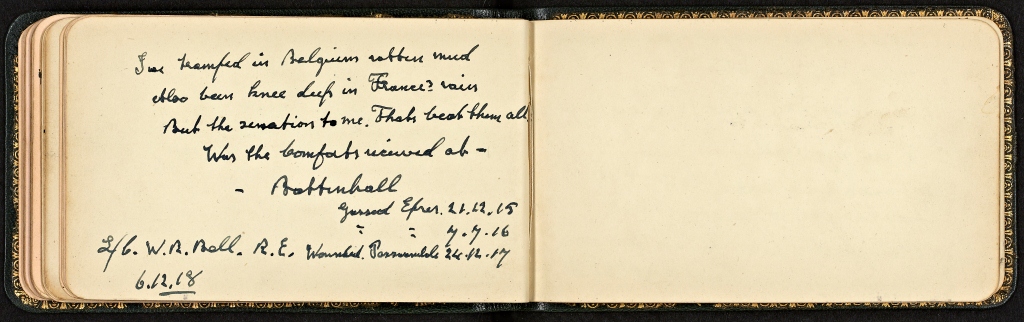 I've tramped in Belgium rotten mud
Also been knee deep in France's rain
But the sensation to me. Thats beat them all
Was the Comforts received at -
- Battenhall
Gassed Ypres. 21.12.15
" " 7.7.16
L/C. W.R. Bell. R.E. Wounded. Passchendale 24.12.17
6.12.18